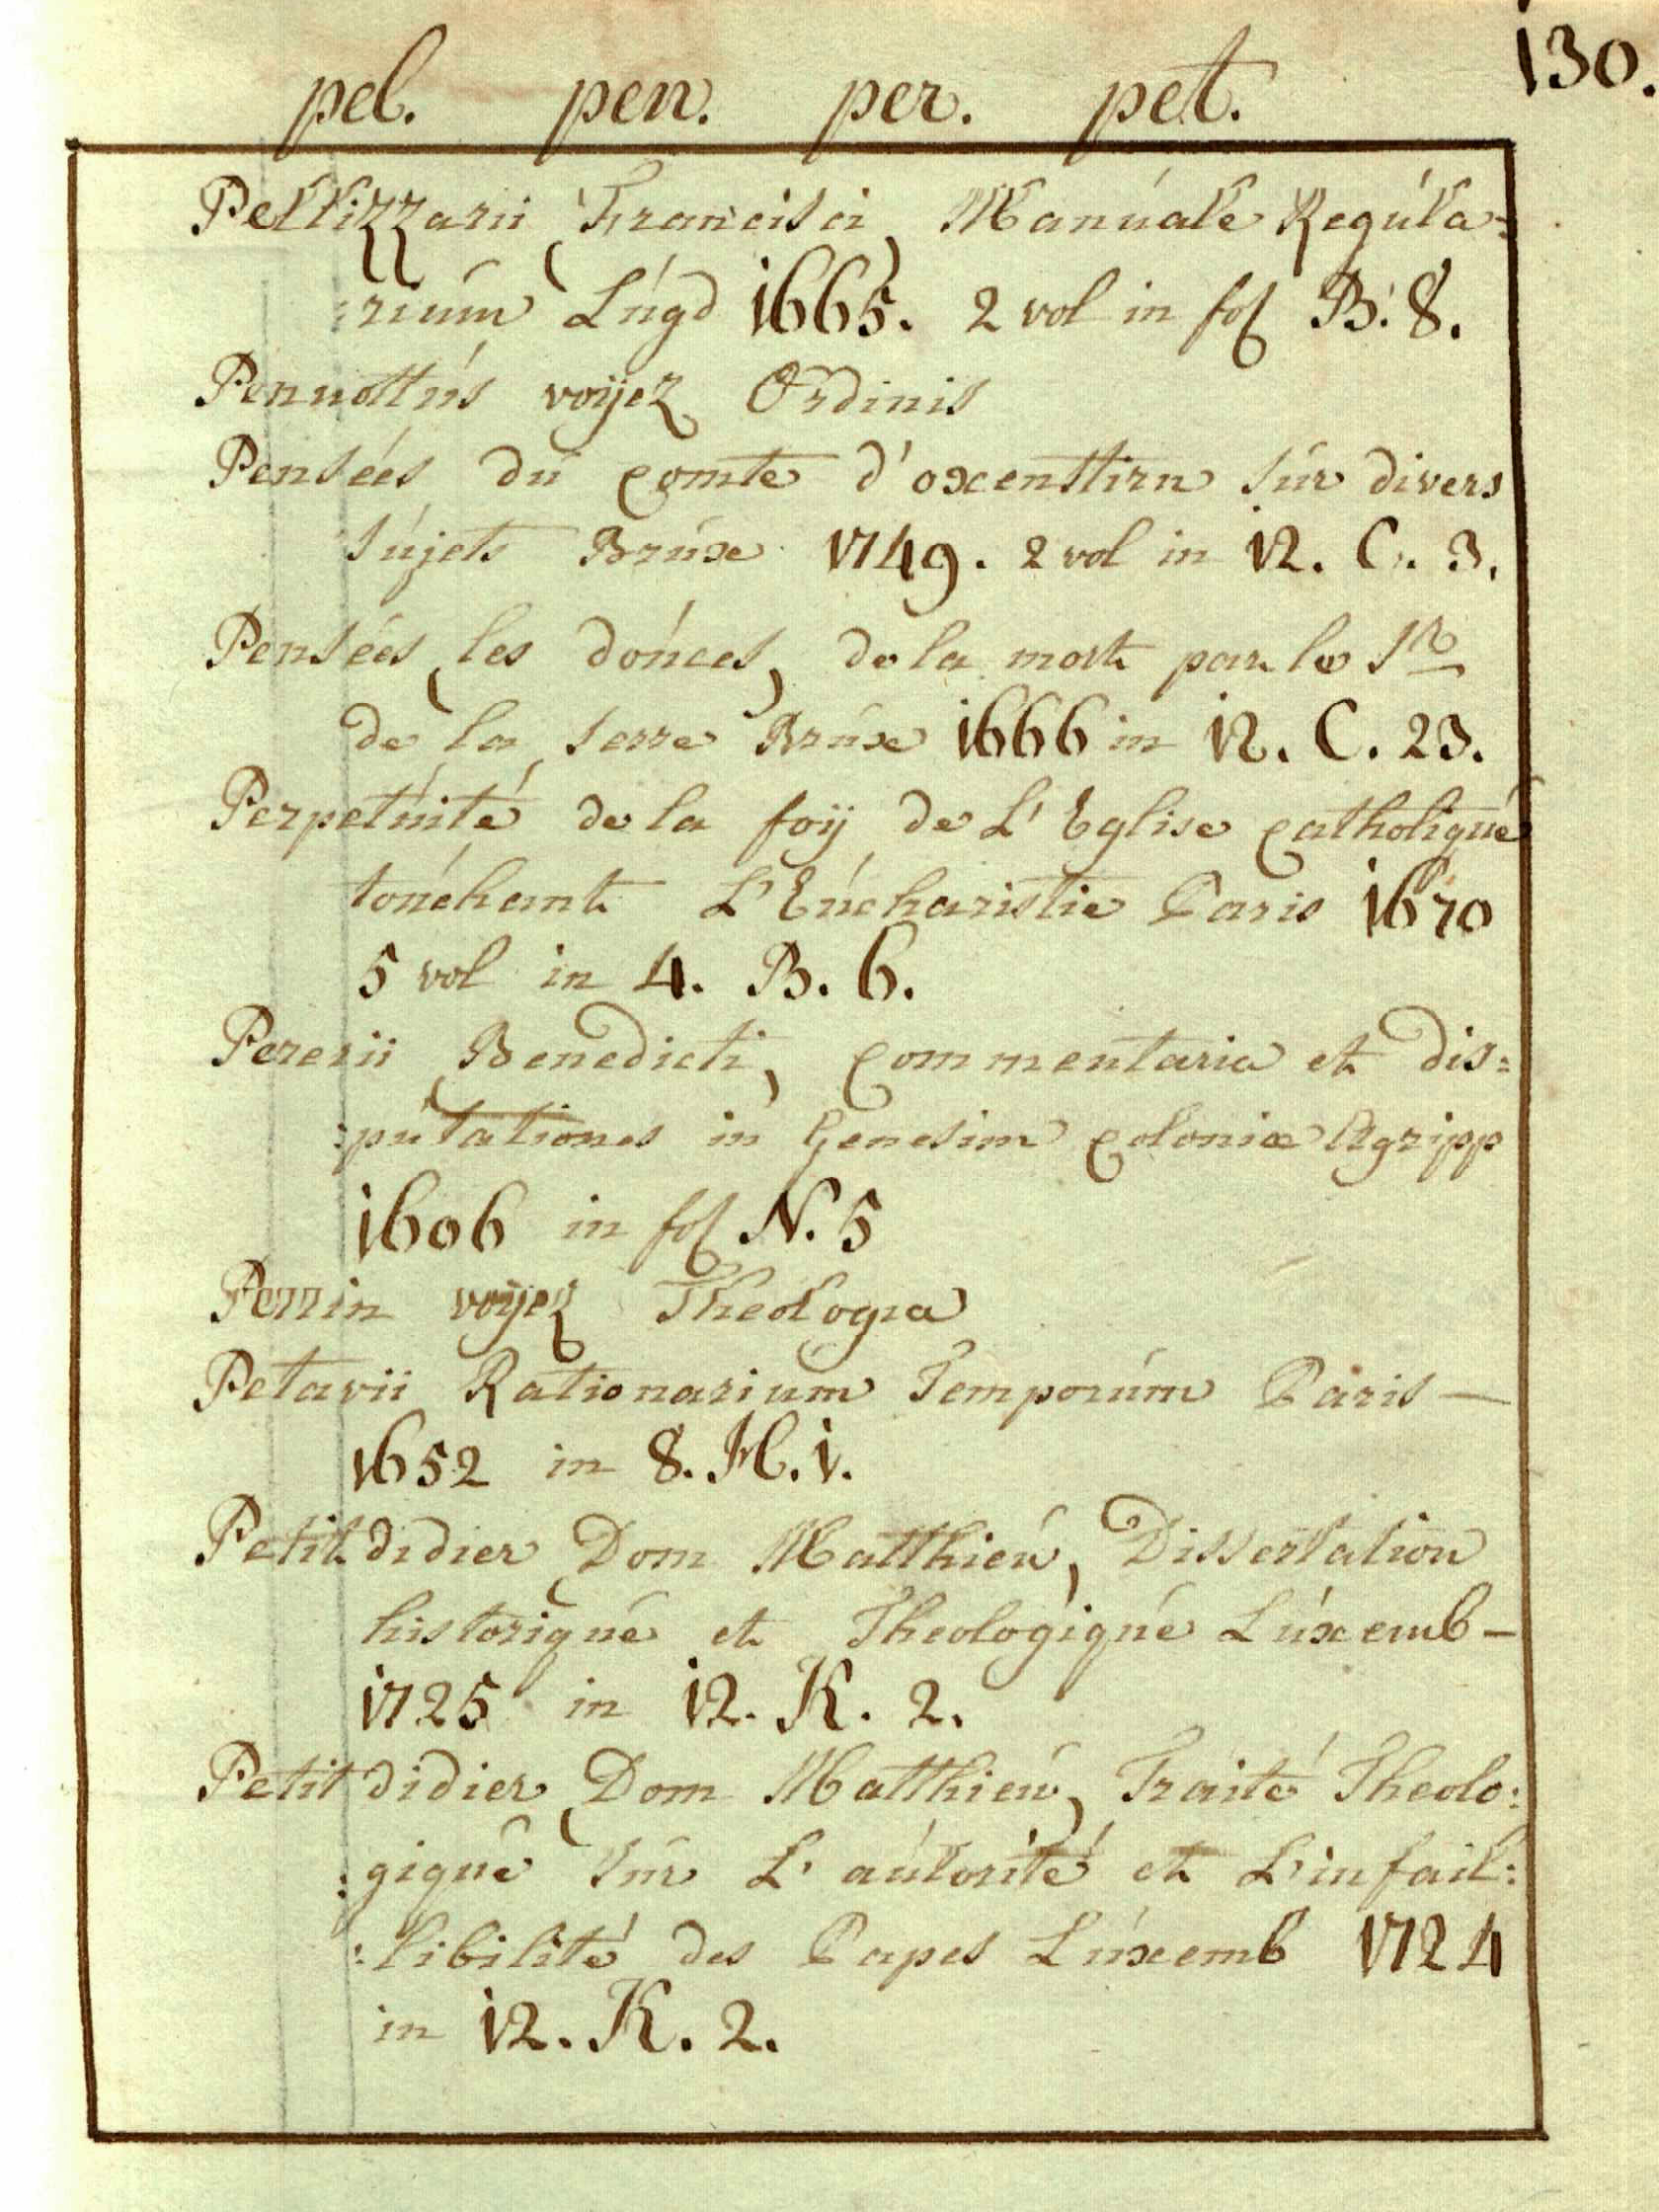 130.
pel. pen. per. pet.
Pellizzarii (Francisci) Manúale Regúla=
:riúm Lúgd 1665. 2 vol in fol B. 8.
Pennottús voÿez Ordinis
Pensées dú comte d'oxenstirn súr divers
sújets Brúxe 1749. 2 vol in 12. C. 3.
Pensées (les doúces) de la mort par le Sr
de la serre Brúxe 1666 in 12. C. 23.
Perpetúité de la foÿ de L'Eglise catholiqúe
toúchant L'Eúcharistie Paris 1670
5 vol in 4. B. 6.
Pererii (Benedicti) commentaria et dis=
:pútationes in Genesim coloniæ Agripp
1606 in fol N. 5
Perrin voÿez Theologia
Petavii Rationarium Temporúm Paris —
1652 in 8. H. 1.
Petit didier (Dom Matthieú) Dissertation
historiqúe et Theologiqúe Lúxemb —
1725 in 12. K. 2.
Petit didier (Dom Matthieú) Traité Theolo:
:giqúe súr L'aútorité et L'infail:
:libilité des Papes Lúxemb 1724
in 12. K. 2.